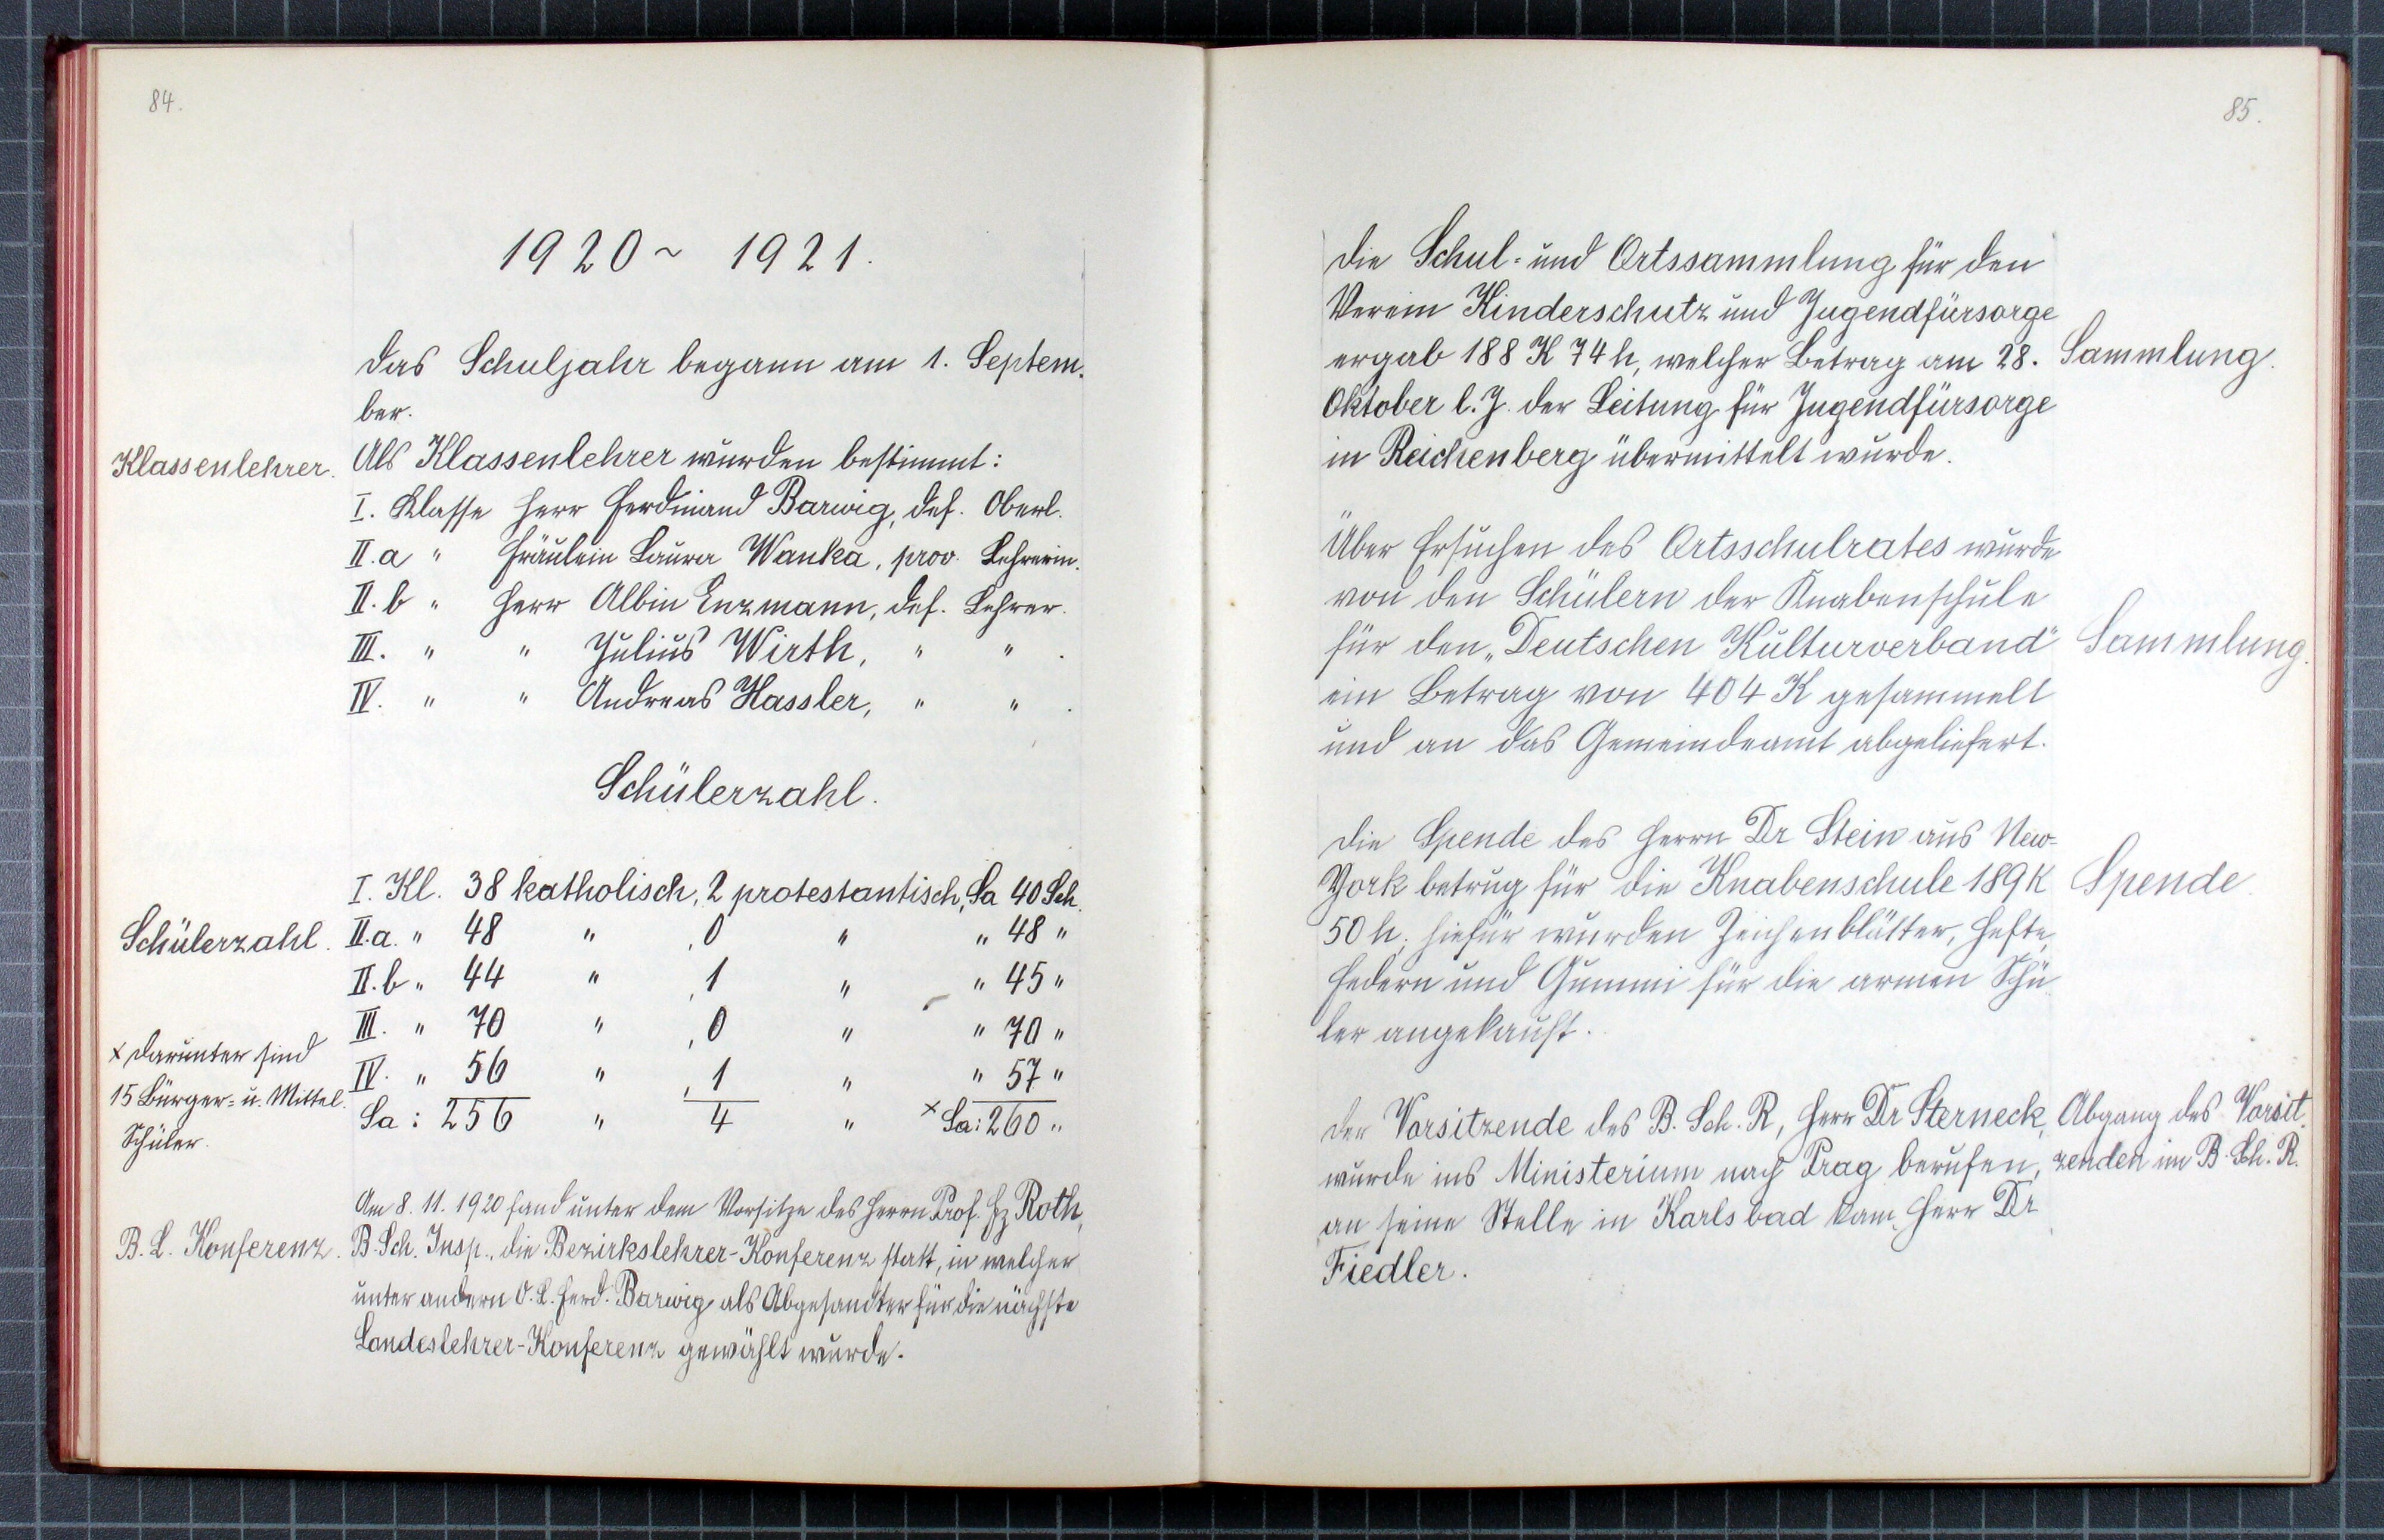 84.
1920 ~ 1921.
Das Schuljahr begann am 1. Septem-
ber.
Klassenlehrer. Als Klassenlehrer wurden bestimmt:
I. Klasse Herr Ferdinand Barwig, def. Oberl.
II.a " Fräulein Laura Wanka, prov. Lehrerin.
II.b " Herr Albin Enzmann, def. Lehrer.
III. " " Julius Wirth, " " .
IV. " " Andreas Hassler, " " .
Schülerzahl.
I. Kl. 38 katholisch, 2 protestantisch, Sa 40 Sch.
Schülerzahl. II.a. " 48 " , 0 " " 48 "
II.b " 44 " , 1 " " 45 "
III. " 70 " , 0 " " 70 "
x Darunter sind
IV. " 56 " , 1 " " 57 "
15 Bürger- u. Mittel-
Sa: 256 " 4 " x Sa: 260 "
Schüler.
Am 8. 11. 1920 fand unter dem Vorsitze des Herrn Prof. Fz Roth,
B. L. Konferenz. B. Sch. Insp., die Bezirkslehrer-Konferenz statt, in welcher
unter andern O. L. Ferd. Barwig als Abgesandter für die nächste
Landeslehrer-Konferenz gewählt wurde.
85.
Die Schul- und Ortssammlung für den
Verein Kinderschutz und Jugendfürsorge
ergab 188 K 74 h, welcher Betrag am 28. Sammlung.
Oktober l. J. der Leitung für Jugendfürsorge
in Reichenberg übermittelt wurde.
Über Ersuchen des Ortsschulrates wurde
von den Schülern der Knabenschule
für den „Deutschen Kulturverband" Sammlung.
ein Betrag von 404 K gesammelt
und an das Gemeindeamt abgeliefert.
Die Spende des Herrn Dr Stein aus New-
York betrug für die Knabenschule 189 K Spende
50 h; hiefür wurden Zeichenblätter, Hefte,
Federn und Gummi für die armen Schü-
ler angekauft.
Der Vorsitzende des B. Sch. R, Herr Dr Sterneck, Abgang des Vorsit-
wurde ins Ministerium nach Prag berufen, zenden im B. Sch. R.
an seine Stelle in Karlsbad kam Herr Dr
Fiedler.